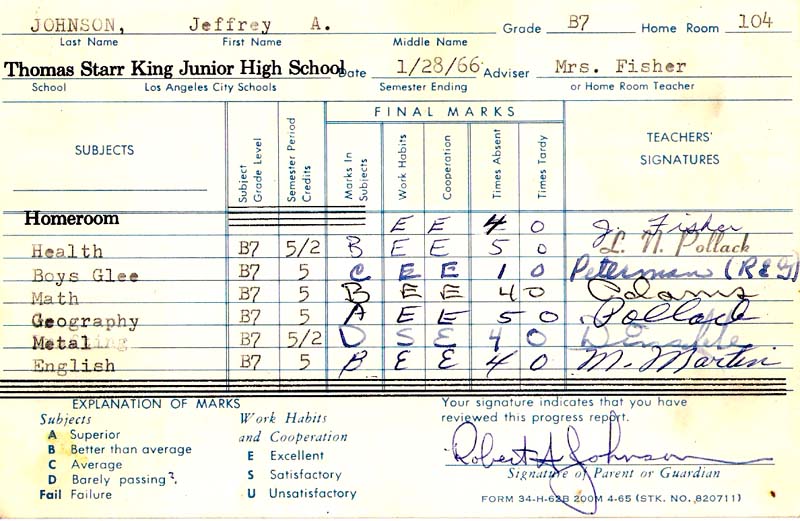 JOHNSON, Jeffrey A. Grade B7 Home Room 104
Last Name First Name Middle Name
Thomas Starr King Junior High School Date 1/28/66 Adviser Mrs. Fisher
School Los Angeles City Schools Semester Ending or Home Room Teacher
FINAL MARKS
SUBJECTS Subject Grade Level Semester Period Credits Marks In Subjects Work Habits Cooperation Times Absent Times Tardy TEACHERS' SIGNATURES
Homeroom E E 4 0 J. Fisher
Health B7 5/2 B E E 5 0 L. N. Pollack
Boys Glee B7 5 C E E 1 0 Peterman (REG)
Math B7 5 B E E 4 0 Adams
Geography B7 5 A E E 5 0 Pollack
Metal B7 5/2 D S E 4 0
English B7 5 B E E 4 0 M. Martin
EXPLANATION OF MARKS
Subjects
A Superior
B Better than average
C Average
D Barely passing?
Fail Failure
Work Habits
and Cooperation
E Excellent
S Satisfactory
U Unsatisfactory
Your signature indicates that you have
reviewed this progress report.
Robert A Johnson
Signature of Parent or Guardian
FORM 34-H-62B 200M 4-65 (STK. NO. 820711)